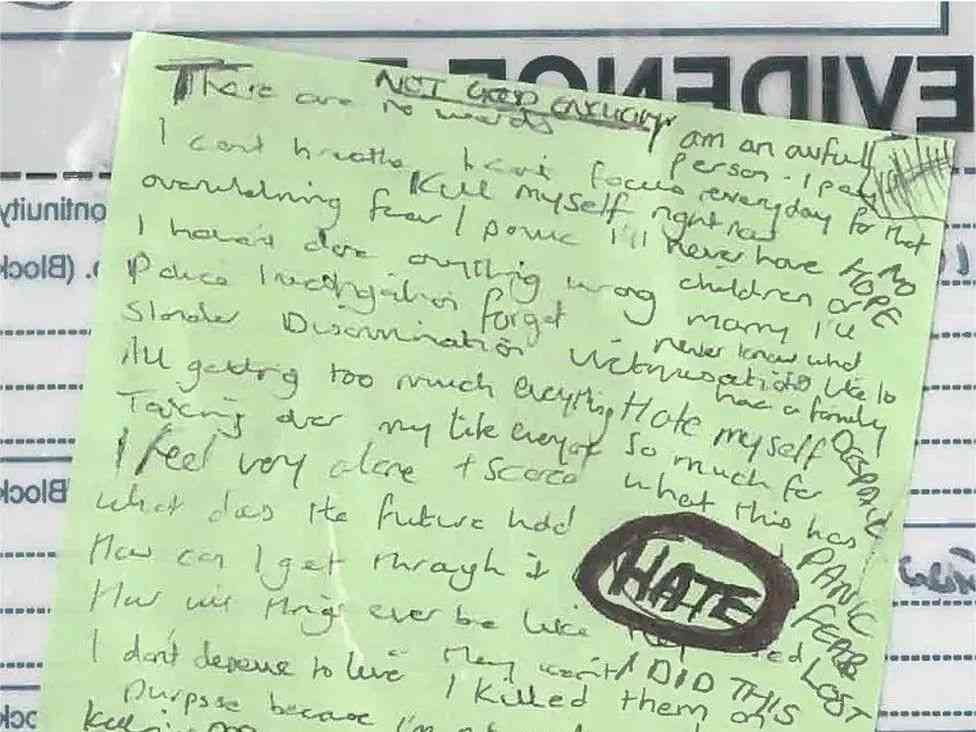 NOT GOOD ENOUGH
There are no words
I am an awful person. I pay everyday for that
I cant breathe I cant focus
Kill myself right now
overwhelming fear / panic I'll never have
NO HOPE
I haven't done anything wrong children or marry I'll
Police investigation forget never know what
Slander Discrimination Victimisation its like to
have a family
All getting too much everything Hate myself
DESPAIR
Taking over my life everyday so much for
I feel very alone + scared what this has
What does the future hold
PANIC
How can I get through it
HATE
FEAR
How will things ever be like
LOST
I don't deserve to live They won't I DID THIS
I killed them on
purpose because I'm not
EVIDENCE
Continuity
(Block
Block
Block